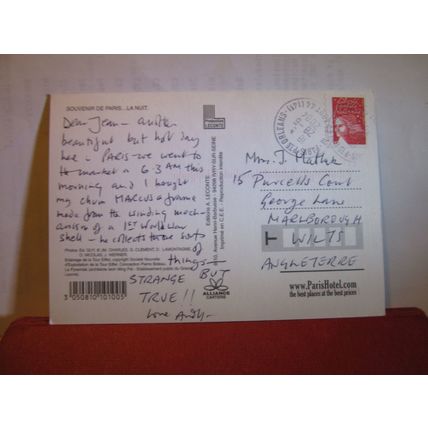 SOUVENIR DE PARIS...LA NUIT.
Dear Jean - another
beautiful but hot day
here - PARIS - we went to
the market a 6.3 AM this
morning and I bought
my chum MARCUS a frame
made from the winding mech
anism of a 1st World War
shell - he collects those sorts
of
things -
STRANGE BUT
TRUE!!
Love Andy-
3 050810 101005
Editions A. LECONTE
Imprimé en C.E.E. - Reproduction interdite
LECONTE
ALLIANCE
CARTERIE
Mrs. J.
15 Purcells Court
George Lane
MARLBOROUGH
WILTS
ANGLETERRE
www.ParisHotel.com
the best places at the best prices